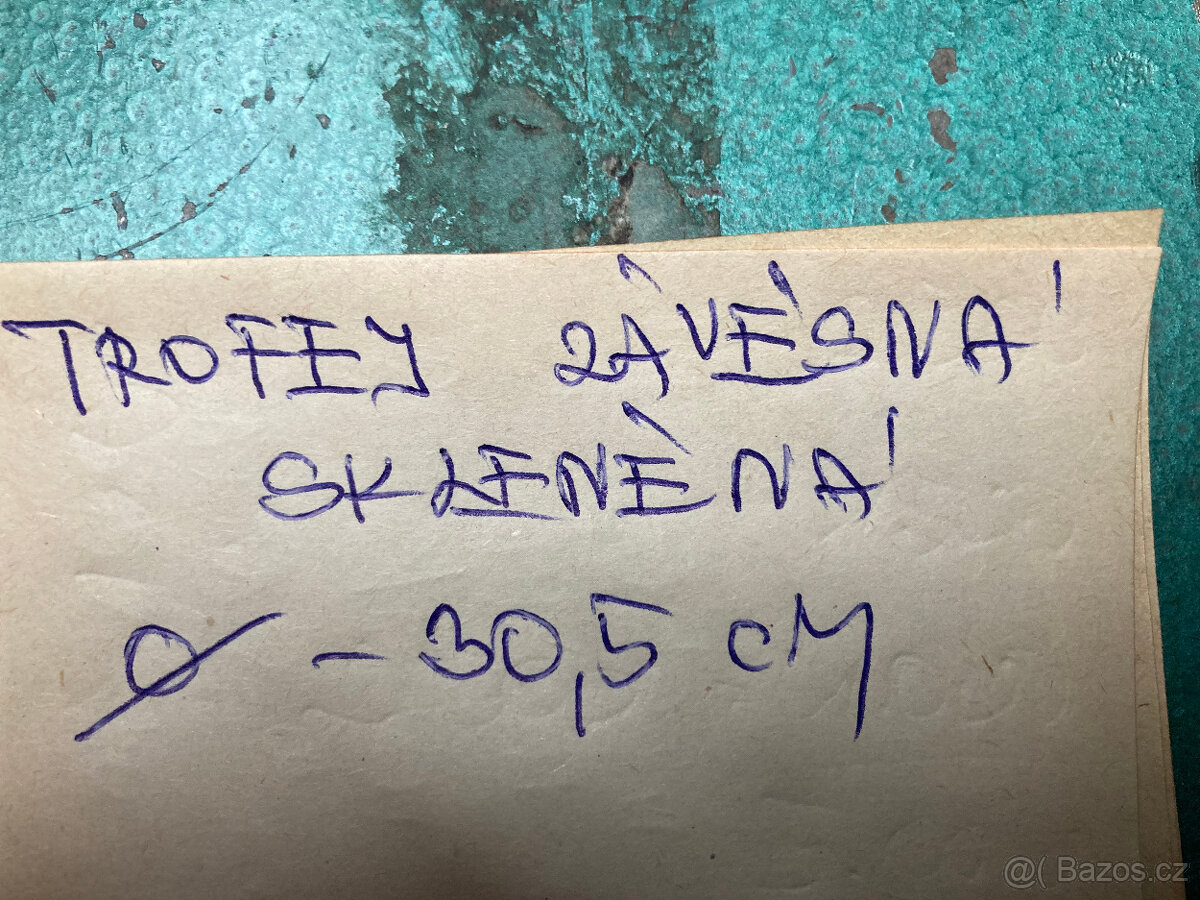 TROFEJ ZÁVĚSNÁ
SKLENĚNÁ
⌀ - 30,5 cM
@( Bazos.cz